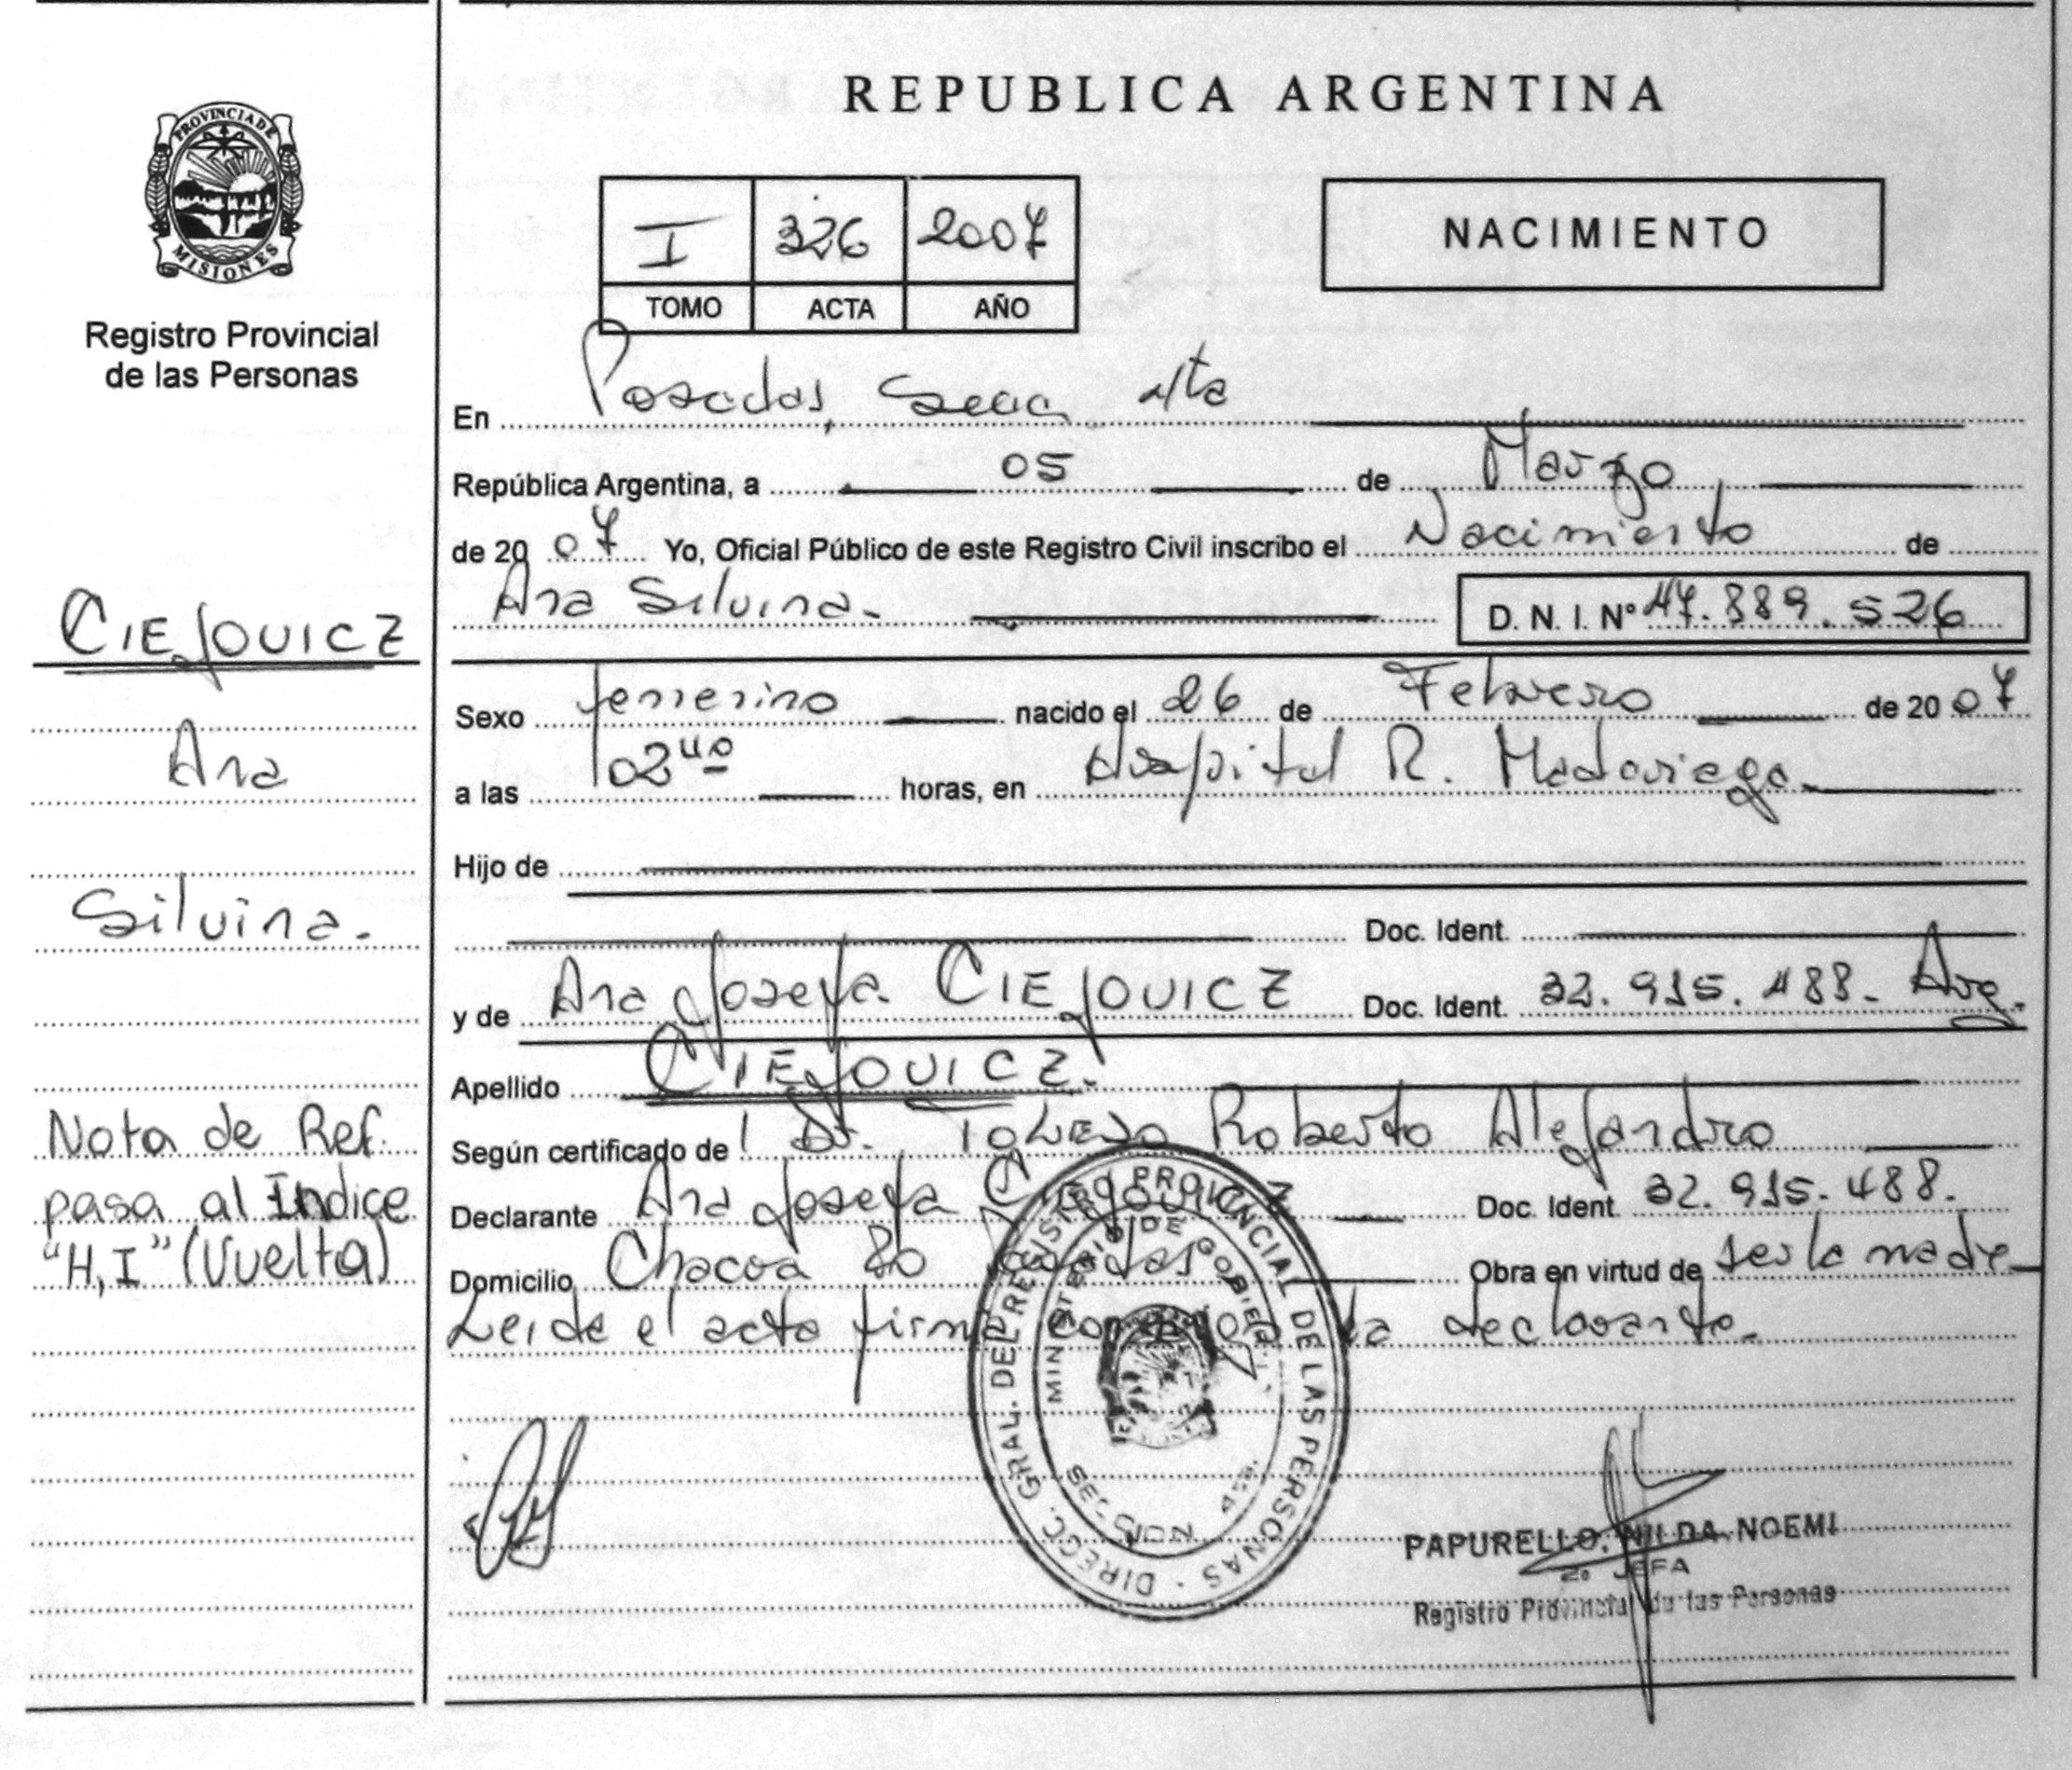 PROVINCIA DE
MISIONES
Registro Provincial
de las Personas
CIEJOVICZ
Ana
Silvina.
Nota de Ref.
pasa al Indice
"H, I" (Vuelta)
REPUBLICA ARGENTINA
I 326 2007
TOMO ACTA AÑO
NACIMIENTO
En Posadas, Secc. 4ta
República Argentina, a 05 de Marzo
de 20 07 Yo, Oficial Público de este Registro Civil inscribo el Nacimiento de
Ana Silvina. D. N. I. Nº 47.889.526
Sexo femenino nacido el 26 de Febrero de 20 07
a las 02 40 horas, en Hospital R. Madariaga.
Hijo de
Doc. Ident.
y de Ana Josefa CIEJOVICZ Doc. Ident. 32.915.488. Arg.
Apellido CIEJOVICZ.
Según certificado de Dr. Toledo Roberto Alejandro
Declarante Ana Josefa Ciejovicz Doc. Ident. 32.915.488.
Domicilio Chacra 80 Posadas Obra en virtud de ser la madre
Leida el acta firma conmigo la declarante.
DIRECC. GRAL. DEL REGISTRO PROVINCIAL DE LAS PERSONAS
MINISTERIO DE GOBIERNO
SECCION
PAPURELLO, NILDA NOEMI
2º JEFA
Registro Provincial de las Personas